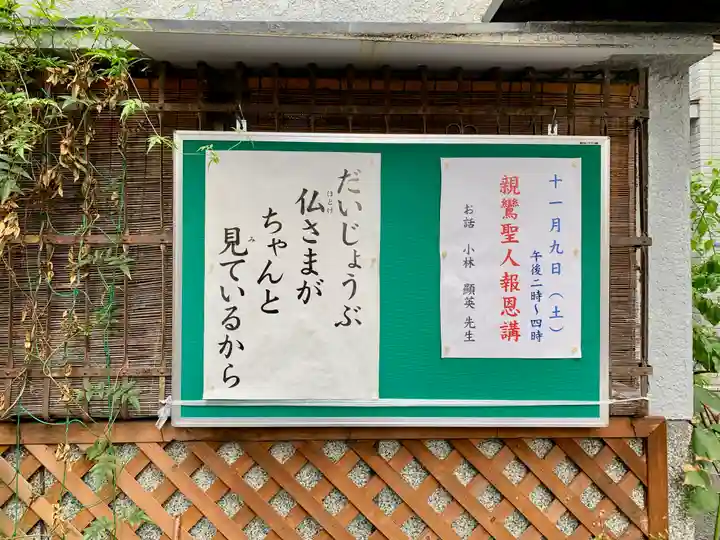 十一月九日（土）
午後二時〜四時
親鸞聖人報恩講
お話 小林 顕英 先生
だいじょうぶ
仏さまが
ほとけ
ちゃんと
見ているから
み